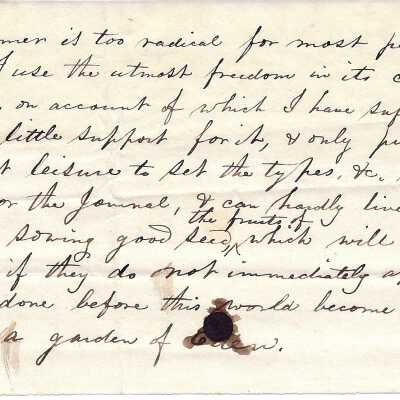 mer is too radical for most pe
I use the utmost freedom in its c
, on account of which I have suf
little support for it, & only pu
t leisure to set the types, &c.,
or the Journal, & can hardly live
the fruits of
sowing good seed, which will
if they do not immediately a
done before this world become
a garden of Eden.